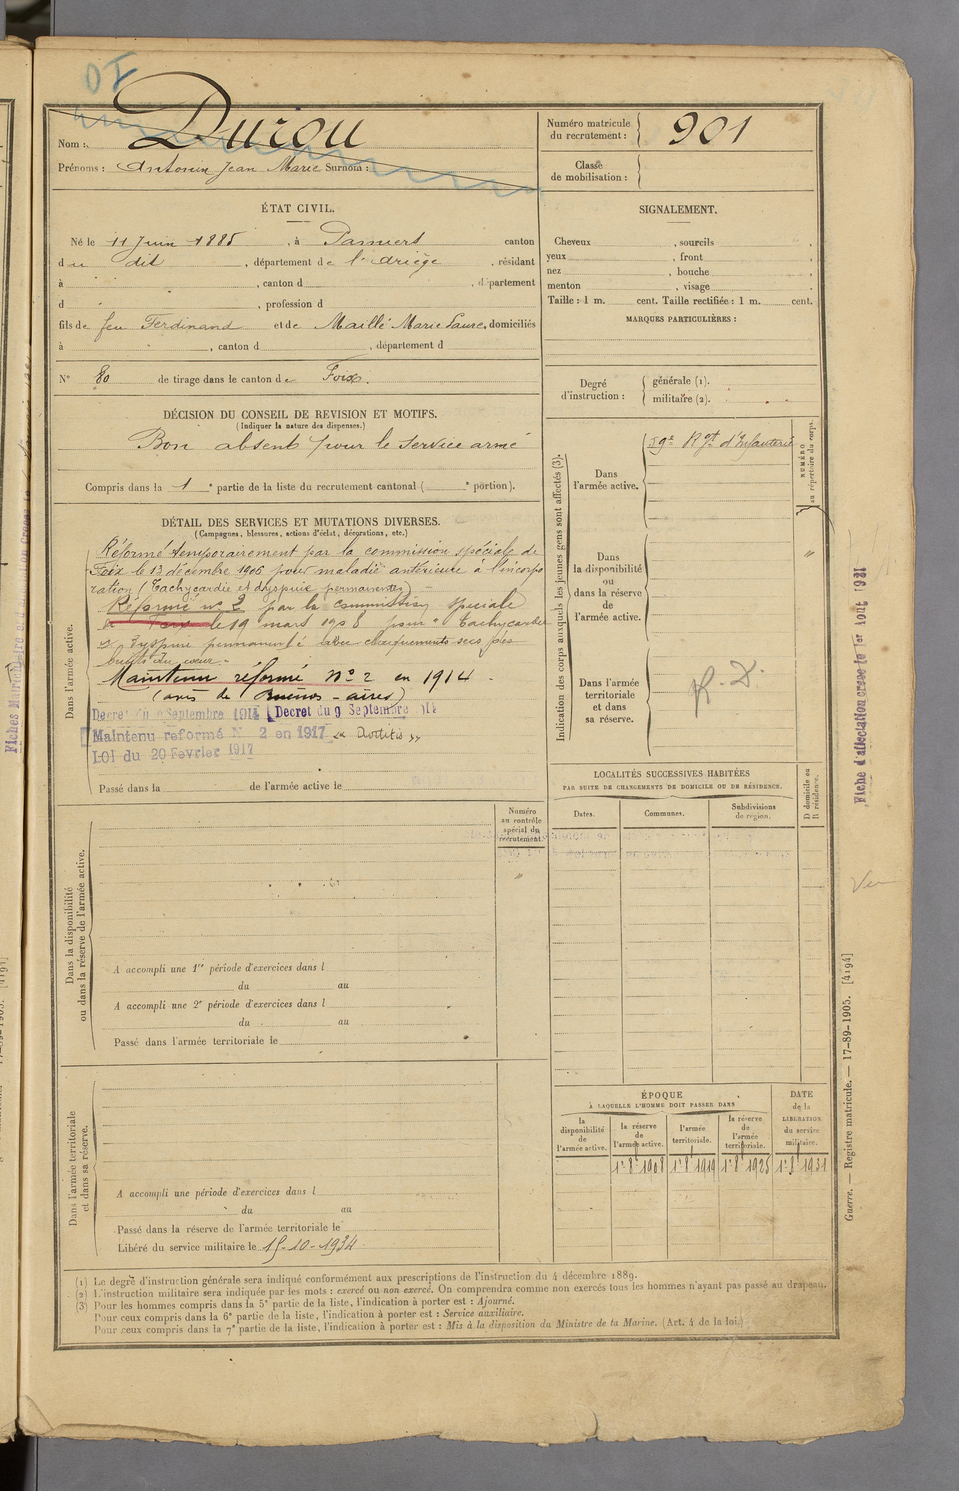 DI
Nom : Durou
Prénoms : Antonin Jean Marie Surnom :
Numéro matricule du recrutement : 901
Classe de mobilisation :
ÉTAT CIVIL.
Né le 11 Juin 1885, à Pamiers canton
du dit, département de l'Ariège, résidant
à , canton d , département
d , profession d
fils de feu Ferdinand et de Maillé Marie Laure, domiciliés
à , canton d , département d
N° 80 de tirage dans le canton de Foix.
DÉCISION DU CONSEIL DE REVISION ET MOTIFS.
(Indiquer la nature des dispenses.)
Bon absent pour le service armé
Compris dans la 1e partie de la liste du recrutement cantonal ( e portion).
DÉTAIL DES SERVICES ET MUTATIONS DIVERSES.
(Campagnes, blessures, actions d'éclat, décorations, etc.)
Dans l'armée active.
Réformé temporairement par la commission spéciale de
Foix le 13 décembre 1906 pour maladie antérieure à l'incorpo
ration (Tachycardie et dyspnée permanentes)
Réformé n° 2 par la Commission spéciale
de Foix le 19 mars 1908 pour "Tachycardie
et dyspnée permanente
bruits du cœur"
Maintenu réformé N° 2 en 1914.
(avis de Buenos-aires)
Decret du 9 Septembre 1914 Decret du 9 Septembre 1914
Maintenu reformé N° 2 en 1917
LOI du 20 Fevrier 1917
Passé dans la de l'armée active le
SIGNALEMENT.
Cheveux , sourcils ,
yeux , front ,
nez , bouche ,
menton , visage .
Taille : 1 m. cent. Taille rectifiée : 1 m. cent.
MARQUES PARTICULIÈRES :
Degré d'instruction : générale (1).
militaire (2).
Indication des corps auxquels les jeunes gens sont affectés (3).
Dans l'armée active. 59e Rgt d'Infanterie
NUMÉRO au répertoire du corps.
Dans la disponibilité ou dans la réserve de l'armée active.
"
Dans l'armée territoriale et dans sa réserve.
R. D.
LOCALITÉS SUCCESSIVES HABITÉES
PAR SUITE DE CHANGEMENTS DE DOMICILE OU DE RÉSIDENCE.
Dates.
Communes.
Subdivisions de région.
D domicile ou R résidence.
Numéro au contrôle spécial du recrutement.
"
Dans la disponibilité ou dans la réserve de l'armée active.
A accompli une 1re période d'exercices dans l
du au
A accompli une 2e période d'exercices dans l
du au
Passé dans l'armée territoriale le
Dans l'armée territoriale et dans sa réserve.
A accompli une période d'exercices dans l
du au
Passé dans la réserve de l'armée territoriale le
Libéré du service militaire le 15-10-1934
ÉPOQUE
À LAQUELLE L'HOMME DOIT PASSER DANS
la disponibilité de l'armée active.
la réserve de l'armée active.
l'armée territoriale.
la réserve de l'armée territoriale.
DATE de la LIBÉRATION du service militaire.
1r 8e 1908
1r 8e 1919
1r 8e 1925
1r 8e 1931
(1) Le degré d'instruction générale sera indiqué conformément aux prescriptions de l'instruction du 4 décembre 1889.
(2) L'instruction militaire sera indiquée par les mots : exercé ou non exercé. On comprendra comme non exercés tous les hommes n'ayant pas passé au drapeau.
(3) Pour les hommes compris dans la 5e partie de la liste, l'indication à porter est : Ajourné.
Pour ceux compris dans la 6e partie de la liste, l'indication à porter est : Service auxiliaire.
Pour ceux compris dans la 7e partie de la liste, l'indication à porter est : Mis à la disposition du Ministre de la Marine. (Art. 4 de la loi.)
Fiche d'affectation créée le 1er Août 1931
Guerre. — Registre matricule. — 17-89-1905. [4194]